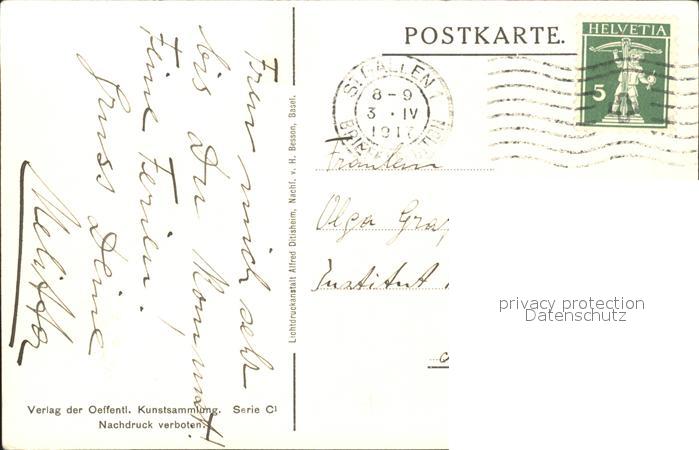 POSTKARTE.
HELVETIA
5
ST. GALLEN 1
8-9
3.IV
BRIEF
Fräulein
Olga Graf
Institut
privacy protection
Datenschutz
Freu mich sehr
bis Du kommst!
Feine Ferien.
Gruss Deine
Melitta
Lichtdruckanstalt Alfred Ditisheim, Nachf. v. H. Besson, Basel.
Verlag der Oeffentl. Kunstsammlung. Serie C¹
Nachdruck verboten.